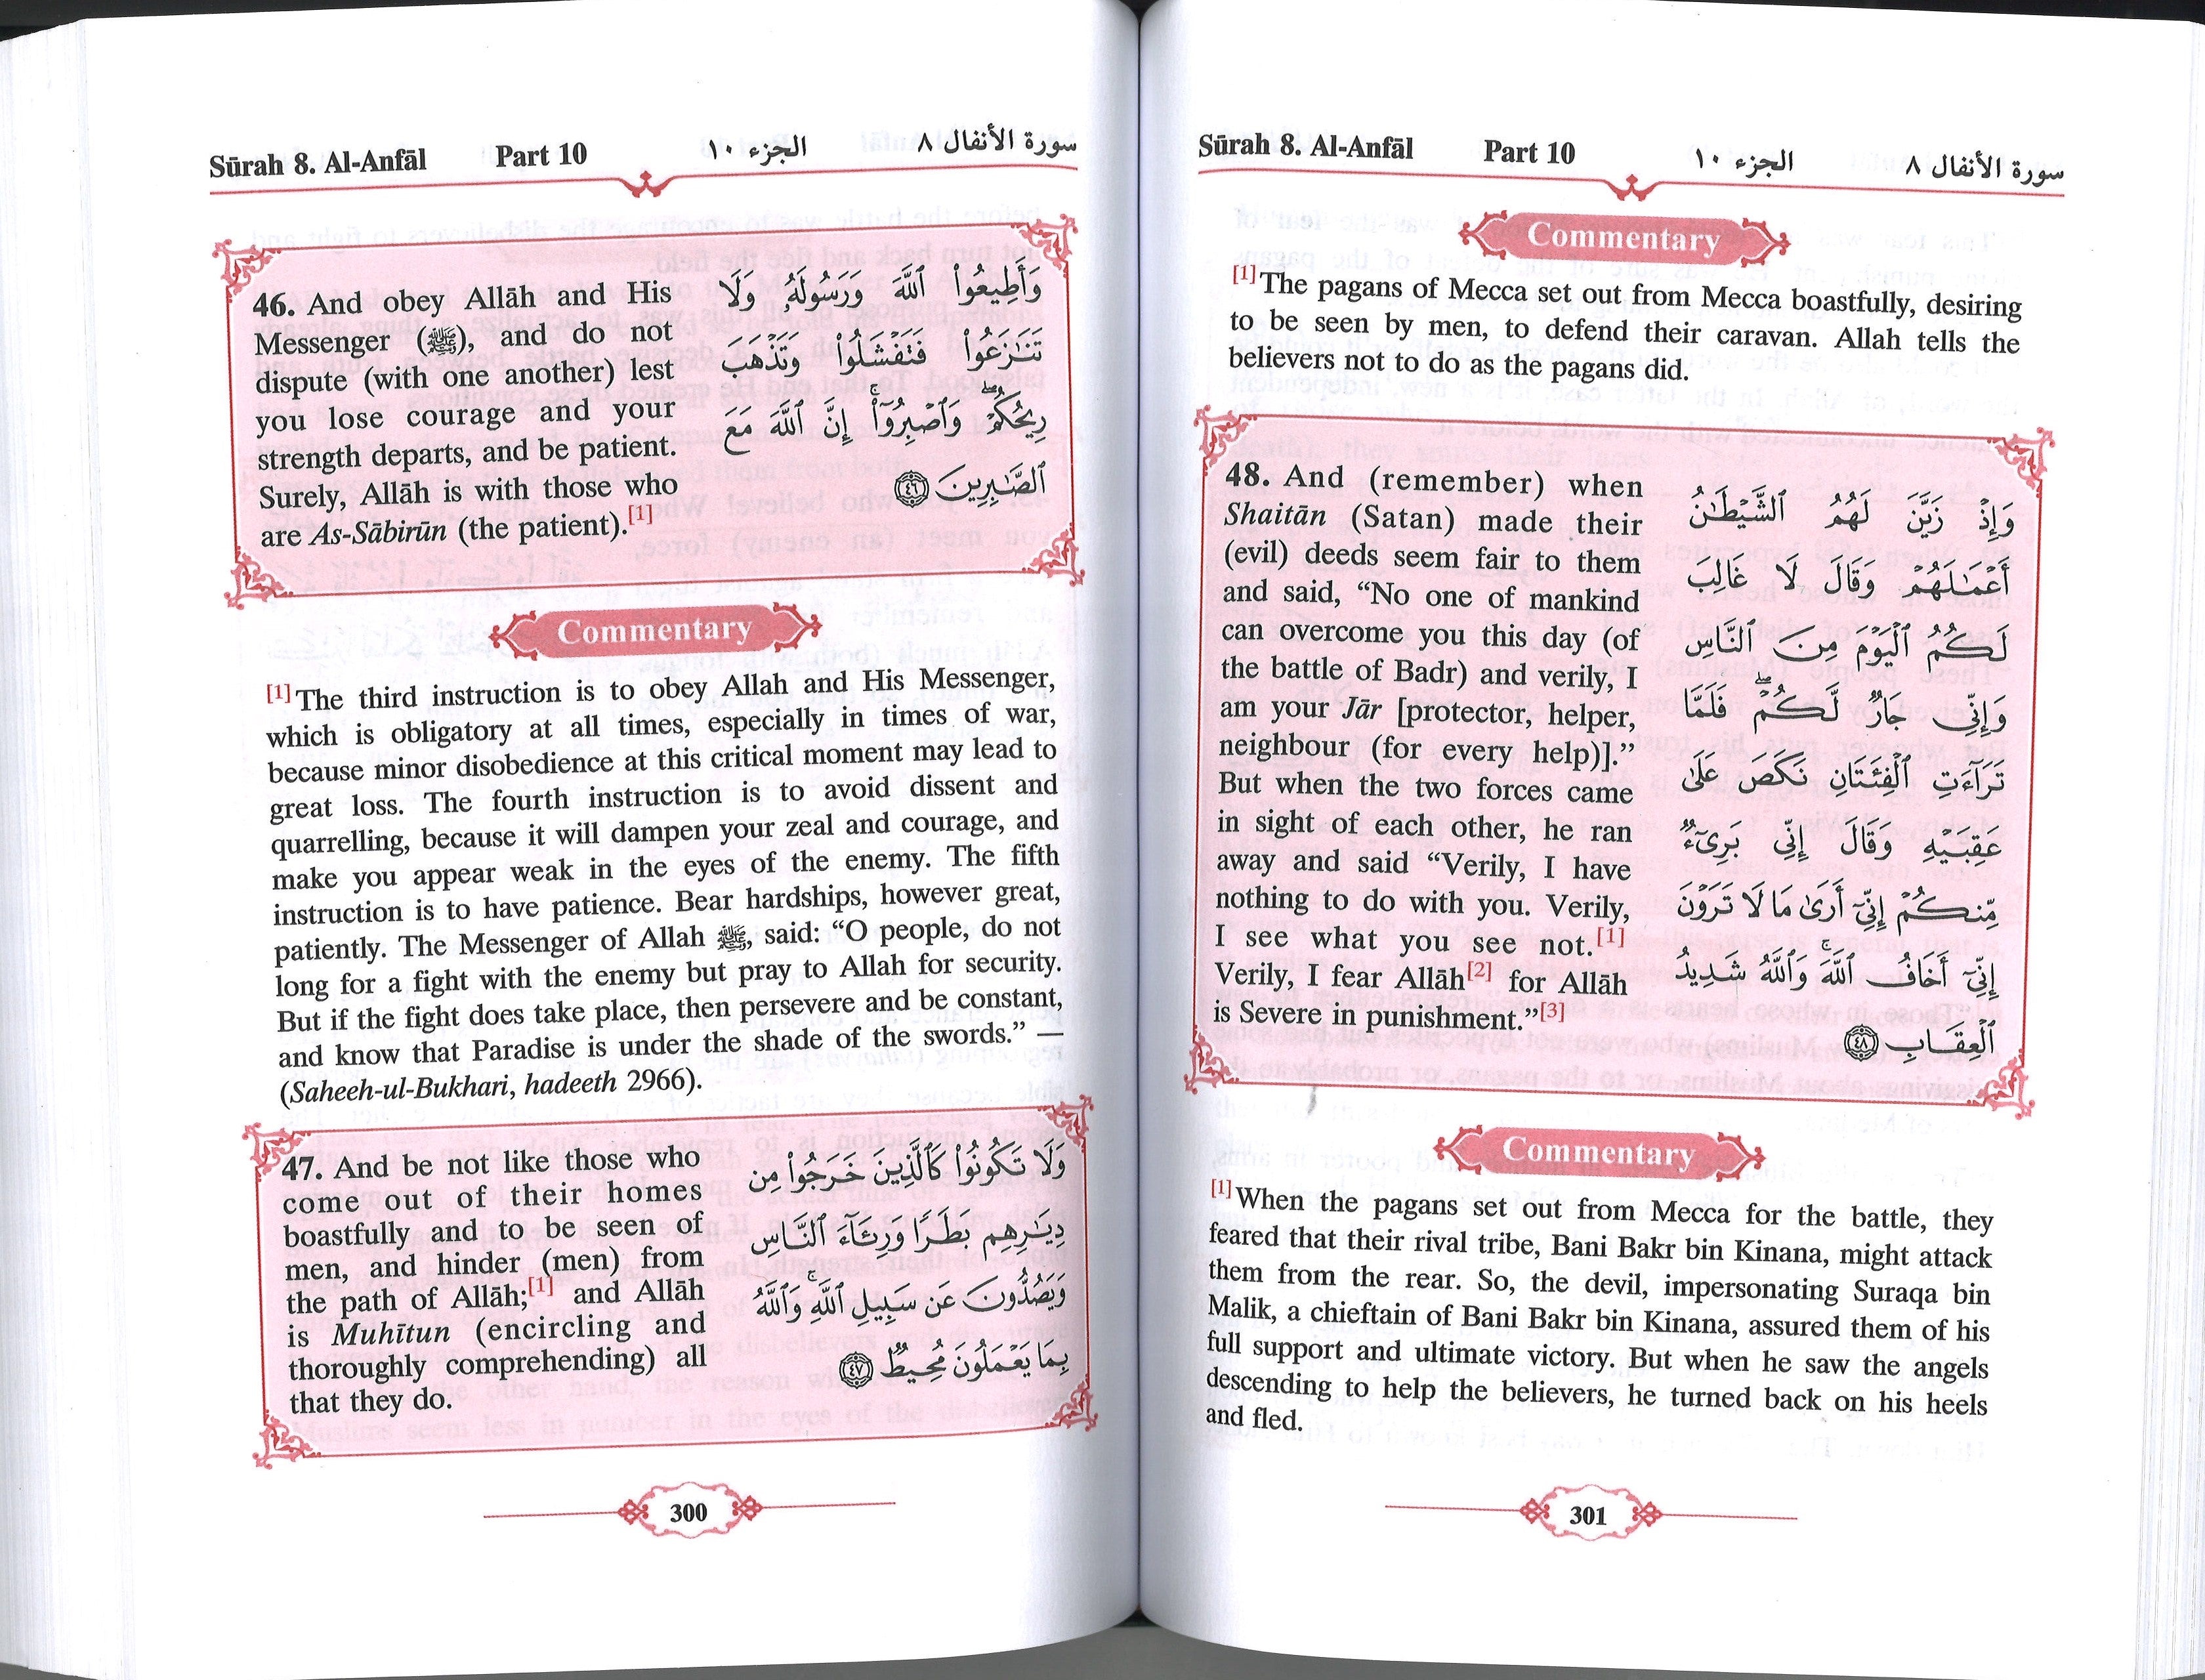 Sūrah 8. Al-Anfāl Part 10 الجزء ١٠ سورة الأنفال ٨
46. And obey Allāh and His
Messenger (ﷺ), and do not
dispute (with one another) lest
you lose courage and your
strength departs, and be patient.
Surely, Allāh is with those who
are As-Sābirūn (the patient).[1]
وَأَطِيعُوا۟ ٱللَّهَ وَرَسُولَهُۥ وَلَا
تَنَـٰزَعُوا۟ فَتَفْشَلُوا۟ وَتَذْهَبَ
رِيحُكُمْ ۖ وَٱصْبِرُوٓا۟ ۚ إِنَّ ٱللَّهَ مَعَ
ٱلصَّـٰبِرِينَ ٤٦
Commentary
[1]The third instruction is to obey Allah and His Messenger,
which is obligatory at all times, especially in times of war,
because minor disobedience at this critical moment may lead to
great loss. The fourth instruction is to avoid dissent and
quarrelling, because it will dampen your zeal and courage, and
make you appear weak in the eyes of the enemy. The fifth
instruction is to have patience. Bear hardships, however great,
patiently. The Messenger of Allah ﷺ, said: “O people, do not
long for a fight with the enemy but pray to Allah for security.
But if the fight does take place, then persevere and be constant,
and know that Paradise is under the shade of the swords.” —
(Saheeh-ul-Bukhari, hadeeth 2966).
47. And be not like those who
come out of their homes
boastfully and to be seen of
men, and hinder (men) from
the path of Allāh;[1] and Allāh
is Muhītun (encircling and
thoroughly comprehending) all
that they do.
وَلَا تَكُونُوا۟ كَٱلَّذِينَ خَرَجُوا۟ مِن
دِيَـٰرِهِم بَطَرًا وَرِئَآءَ ٱلنَّاسِ
وَيَصُدُّونَ عَن سَبِيلِ ٱللَّهِ ۚ وَٱللَّهُ
بِمَا يَعْمَلُونَ مُحِيطٌ ٤٧
300
Sūrah 8. Al-Anfāl Part 10 الجزء ١٠ سورة الأنفال ٨
Commentary
[1]The pagans of Mecca set out from Mecca boastfully, desiring
to be seen by men, to defend their caravan. Allah tells the
believers not to do as the pagans did.
48. And (remember) when
Shaitān (Satan) made their
(evil) deeds seem fair to them
and said, “No one of mankind
can overcome you this day (of
the battle of Badr) and verily, I
am your Jār [protector, helper,
neighbour (for every help)].”
But when the two forces came
in sight of each other, he ran
away and said “Verily, I have
nothing to do with you. Verily,
I see what you see not.[1]
Verily, I fear Allāh[2] for Allāh
is Severe in punishment.”[3]
وَإِذْ زَيَّنَ لَهُمُ ٱلشَّيْطَـٰنُ
أَعْمَـٰلَهُمْ وَقَالَ لَا غَالِبَ
لَكُمُ ٱلْيَوْمَ مِنَ ٱلنَّاسِ
وَإِنِّى جَارٌ لَّكُمْ ۖ فَلَمَّا
تَرَآءَتِ ٱلْفِئَتَانِ نَكَصَ عَلَىٰ
عَقِبَيْهِ وَقَالَ إِنِّى بَرِىٓءٌ
مِّنكُمْ إِنِّىٓ أَرَىٰ مَا لَا تَرَوْنَ
إِنِّىٓ أَخَافُ ٱللَّهَ ۚ وَٱللَّهُ شَدِيدُ
ٱلْعِقَابِ ٤٨
Commentary
[1]When the pagans set out from Mecca for the battle, they
feared that their rival tribe, Bani Bakr bin Kinana, might attack
them from the rear. So, the devil, impersonating Suraqa bin
Malik, a chieftain of Bani Bakr bin Kinana, assured them of his
full support and ultimate victory. But when he saw the angels
descending to help the believers, he turned back on his heels
and fled.
301